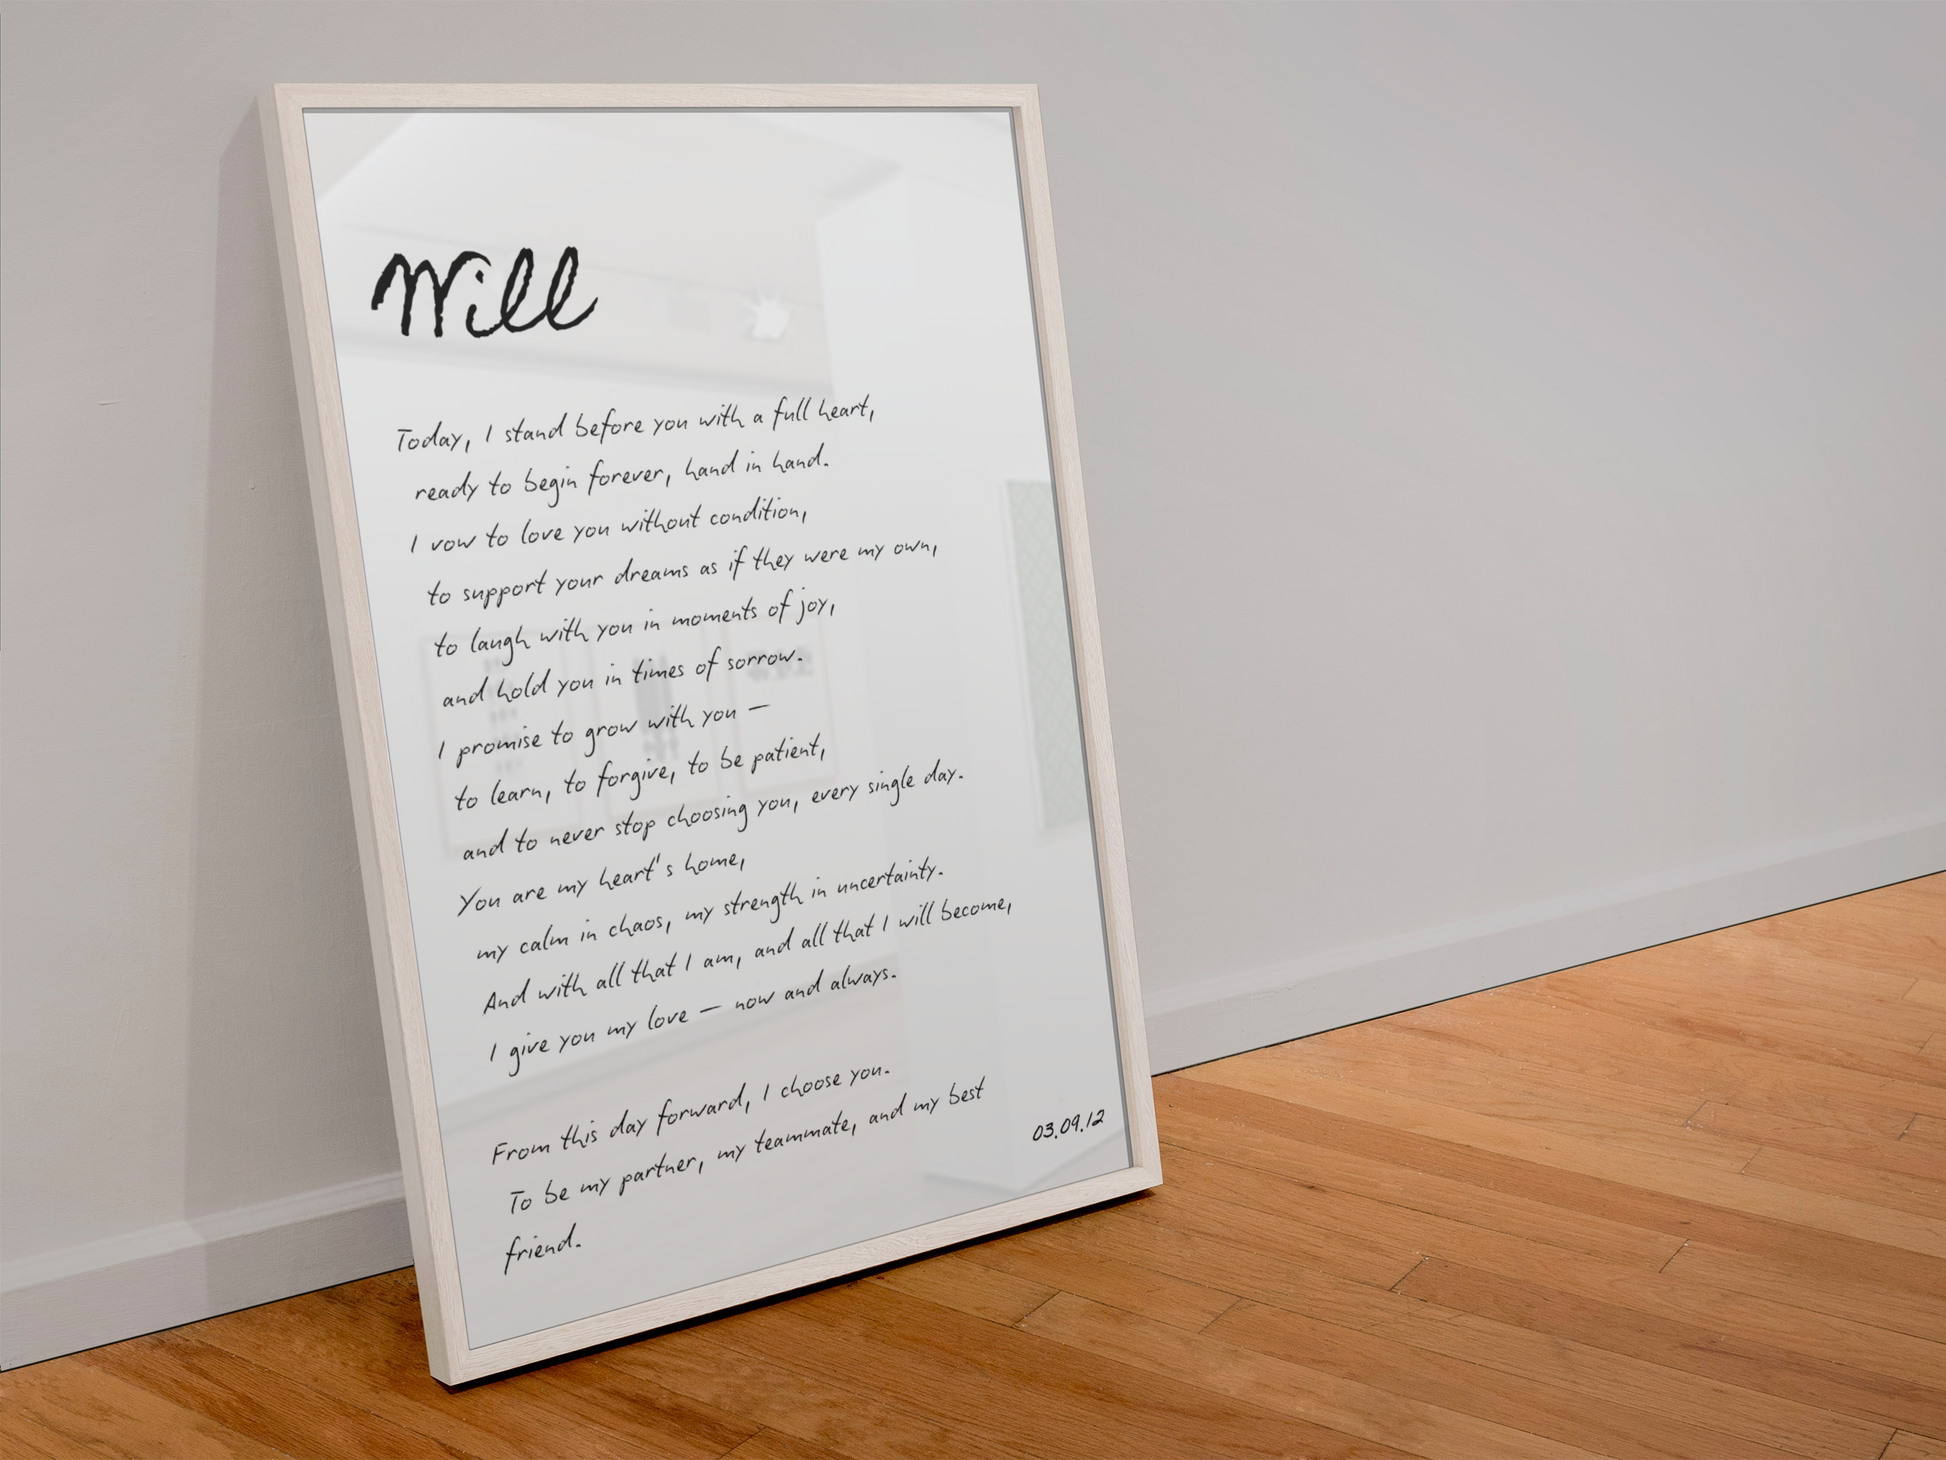 Will
Today, I stand before you with a full heart,
ready to begin forever, hand in hand.
I vow to love you without condition,
to support your dreams as if they were my own,
to laugh with you in moments of joy,
and hold you in times of sorrow.
I promise to grow with you —
to learn, to forgive, to be patient,
and to never stop choosing you, every single day.
You are my heart's home,
my calm in chaos, my strength in uncertainty.
And with all that I am, and all that I will become,
I give you my love — now and always.
From this day forward, I choose you.
To be my partner, my teammate, and my best
friend.
03.09.12